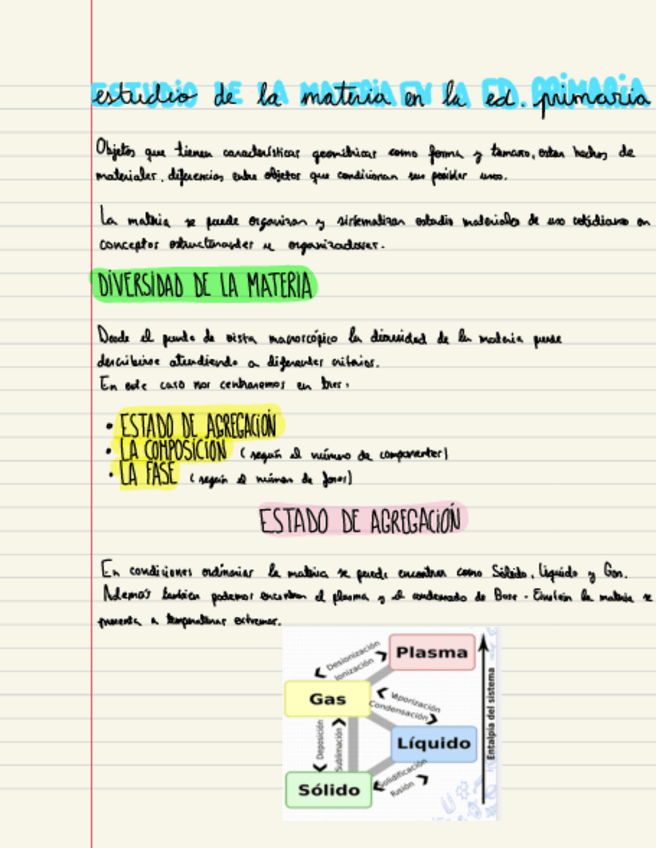 ESTUDIO DE LA MATERIA EN LA ED. PRIMARIA
estudio de la materia en la ed. primaria
Objetos que tienen características geométricas como forma y tamaño, estan hechos de
materiales, diferencias entre objetos que condicionan sus posibles usos.
La materia se puede organizar y sistematizar estudio materiales de uso cotidiano en
conceptos estructurantes u organizadores.
DIVERSIDAD DE LA MATERIA
Desde el punto de vista macroscópico la diversidad de la materia puede
describirse atendiendo a diferentes criterios.
En este caso nos centraremos en tres:
• ESTADO DE AGREGACIÓN
• LA COMPOSICIÓN (según el número de componentes)
• LA FASE (según el número de fases)
ESTADO DE AGREGACIÓN
En condiciones ordinarias la materia se puede encontrar como Sólido, Líquido y Gas.
Ademas tambien podemos encontrar el plasma y el condensado de Bose - Einstein la materia se
presenta a temperaturas extremas.
Plasma
Desionización
Ionización
Gas
Vaporización
Condensación
Líquido
Deposición
Sublimación
Solidificación
Fusión
Sólido
Entalpia del sistema